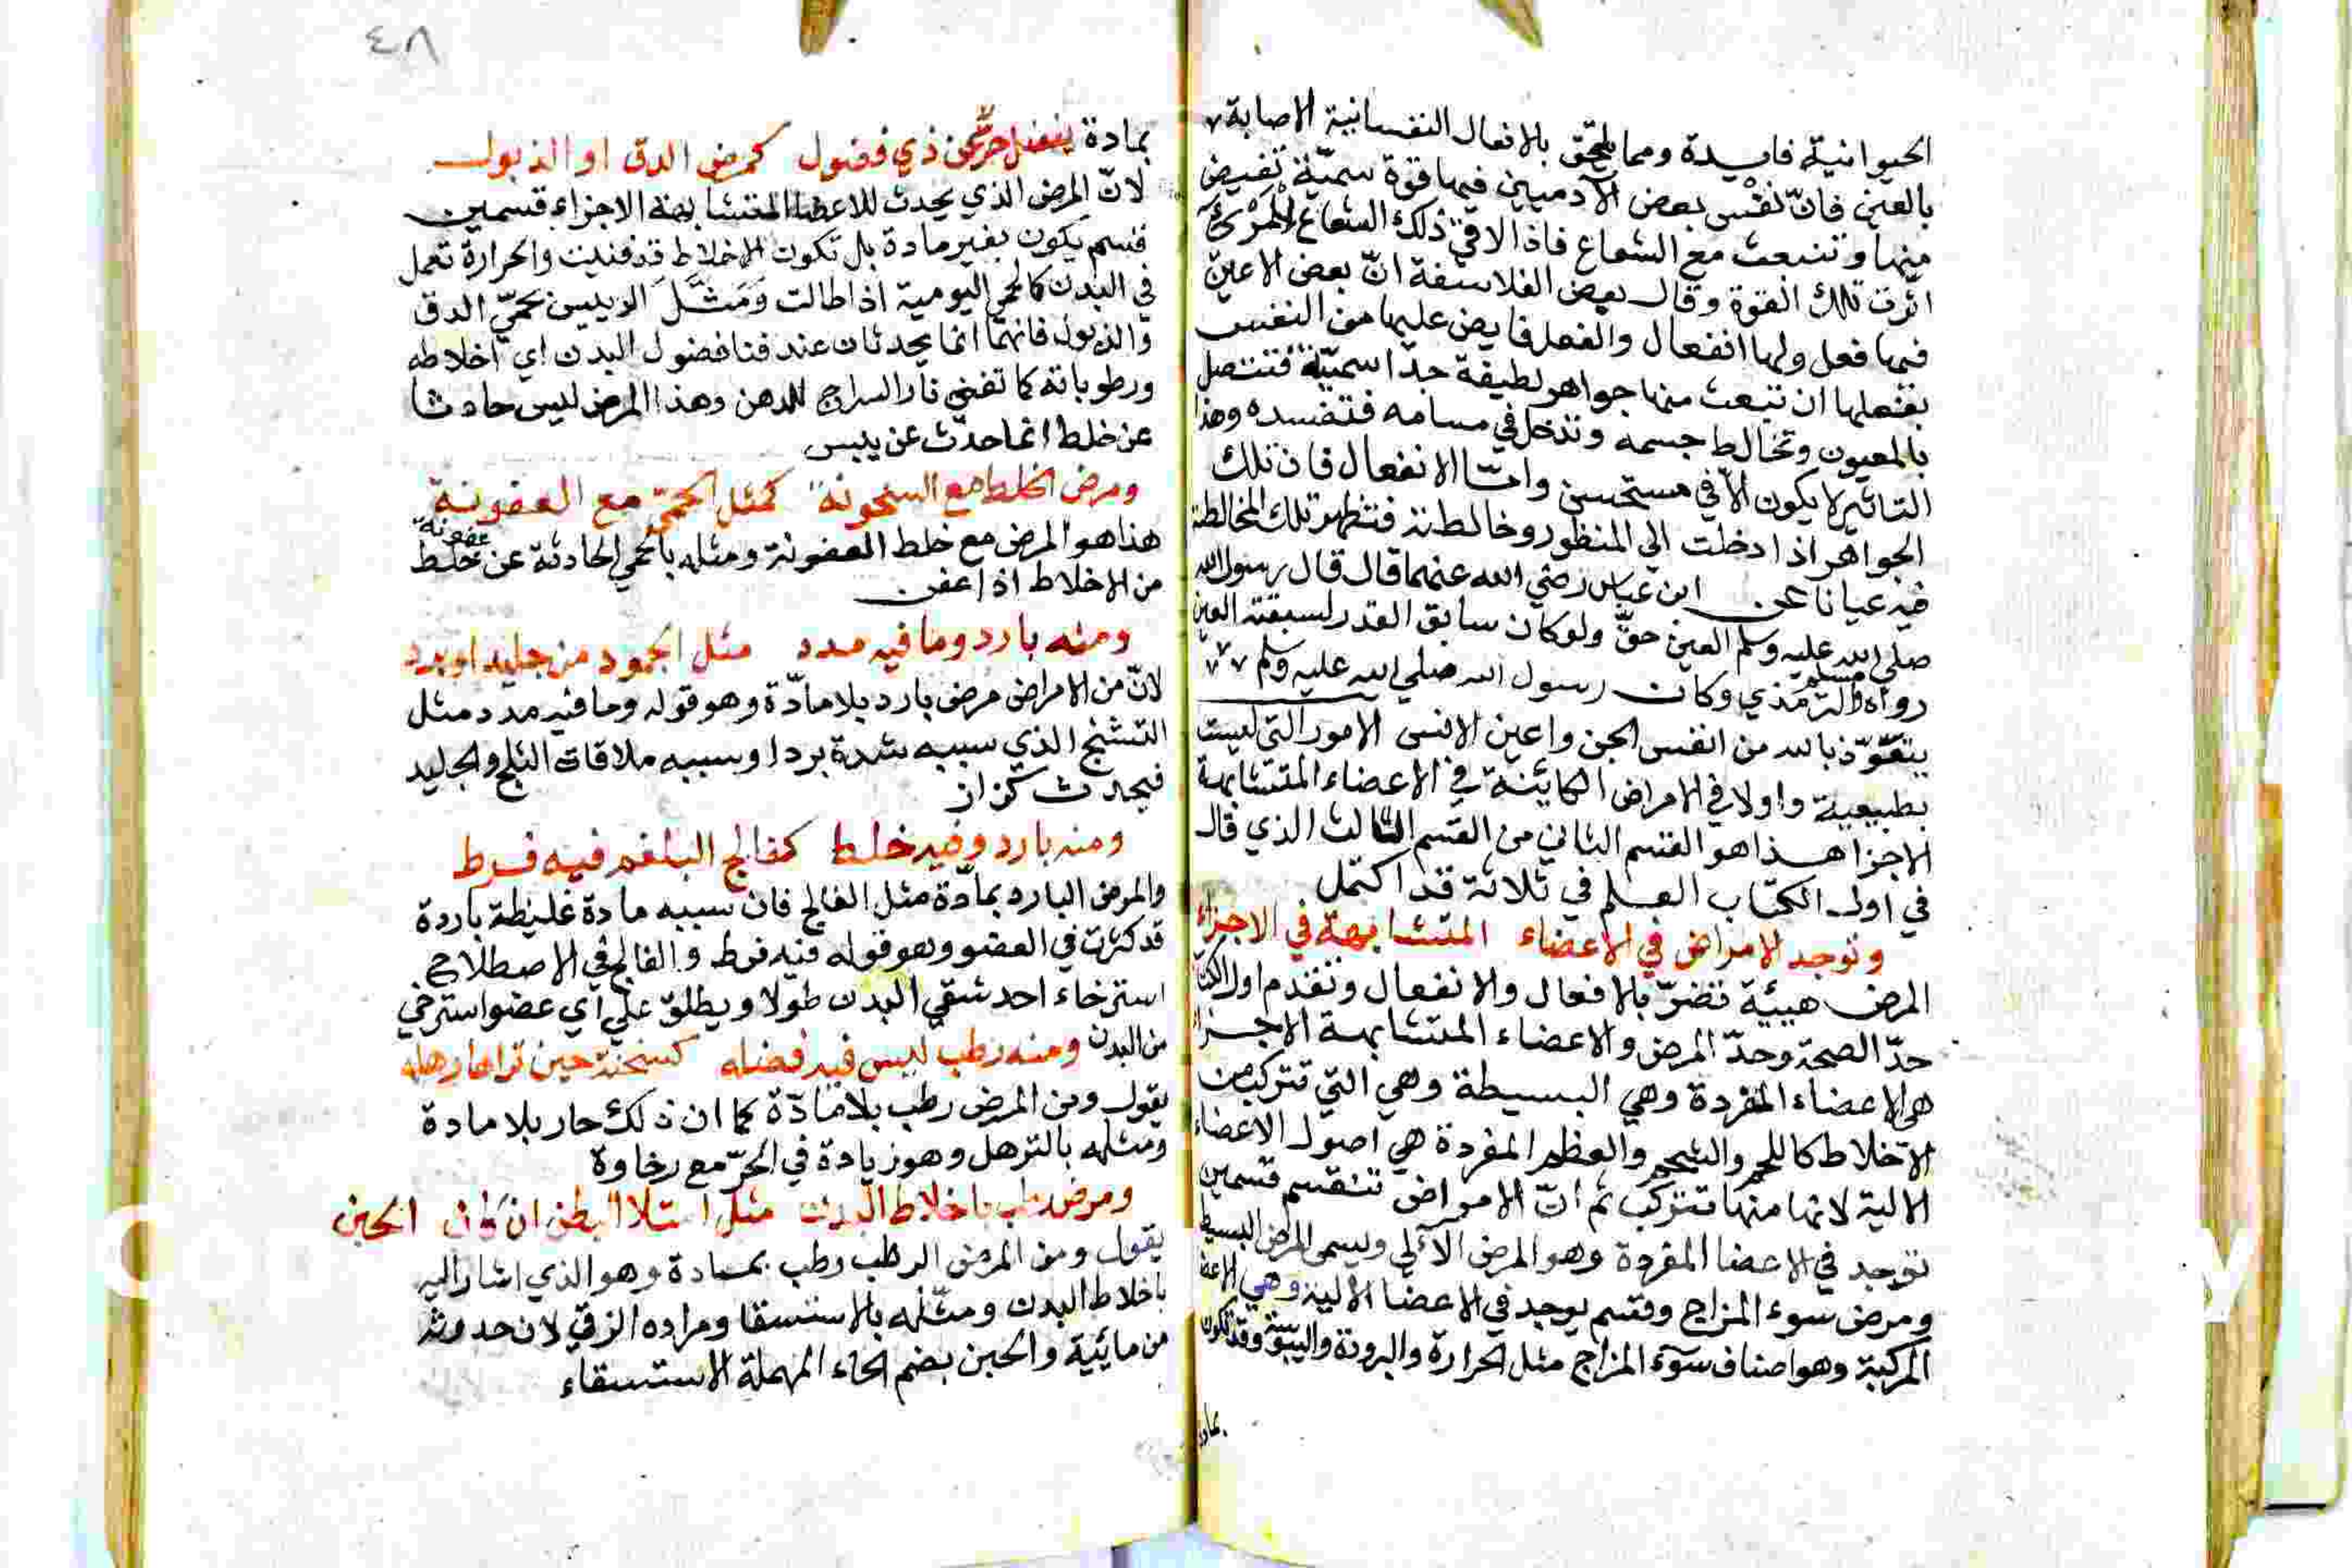 الحيوانية فايدة ومما يلحق بالافعال النفسانية الاصابة
بالعين فانّ نفْس بعض الآدميين فيها قوة سميّة تفيض
منها وتنبعث مع الشعاع فاذا لاقى ذلك الشعاع المرئ
اثّرت تلك القوة وقال بعض الفلاسفة انّ بعض الاعين
فيها فعل ولها انفعال والفعل فايض عليها من النفس
بفعلها ان تنبعث منها جواهر لطيفة جدّا سميّة فتتصل
بالمعيون وتخالط جسمه وتدخل في مسامه فتفسده وهذا
التاثير لا يكون الّا في مستحسن وامّا الانفعال فان تلك
الجواهر اذا دخلت الي المنظور وخالطته فتظهر تلك المخالطة
فيه عيانا عن ابن عباس رضي الله عنهما قال قال رسول الله
صلي الله عليه وسلم العين حقّ ولو كان سابق القدر لسبقته العين
رواه مسلم والترمذي وكان رسول الله صلي الله عليه وسلم
يتعوّذ بالله من انفس الجن واعين الانس الامور التي ليست
بطبيعية واولا في الامراض الكاينة في الاعضاء المتشابهة
الاجزا هذا هو القسم الثاني من القسم الثالث الذي قال
في اول الكتاب العلم في ثلاثة قد اكتمل
وتوجد الامراض في الاعضاء المتشابهة في الاجزاء
المرض هيئة تضرّ بالافعال والانفعال وتقدم اول الكتا
حدّ الصحة وحدّ المرض والاعضاء المتشابهة الاجزا
هي الاعضاء المفردة وهي البسيطة وهي التي تتركب من
الاخلاط كاللحم والشحم والعظم المفردة هي اصول الاعضاء
الالية لانها منها تتركب ثم انّ الامراض تنقسم قسمين
توجد في الاعضا المفردة وهو المرض الآلي ويسمى المرض البسيط
ومرض سوء المزاج وقسم يوجد في الاعضا الالية وهي الاعضا
المركبة وهو اصناف سوء المزاج مثل الحرارة والبرودة واليبوسة وقد تكون
بمادة
٤٨
بمادة ذي فضول كمرض الدق او الذبول
لانّ المرض الذي يحدث للاعضا المتشابهة الاجزاء قسمين
قسم يكون بغير مادة بل تكون الاخلاط قد فنيت والحرارة تعمل
في البدن كالحمى اليومية اذا طالت وَمَثَّلَ الرييس بحميّ الدق
والذبول فانهما انما يحدثان عند فنا فضول البدن اي اخلاطه
ورطوباته كما تفني نار السراج للدهن وهذا المرض ليس حادثا
عن خلط انما حدث عن يبس
ومرض الخلط مع السخونة كمثل الحمى مع العفونة
هذا هو المرض مع خلط العفونة ومثله بالحمي الحادثة عن عفونة خلط
من الاخلاط اذا عفن
ومنه بارد وما فيه مدد مثل الجمود من جليد او برد
لانّ من الامراض مرض بارد بلا مادّة وهو قوله وما فيه مدد مثل
التشنج الذي سببه شدة برد او سببه ملاقات الثلج والجليد
فيحدث كزاز
ومنه بارد وفيه خلط كفالج البلغم فيه فرط
والمرض البارد بمادّة مثل الفالج فان سببه مادة غليظة باردة
قد كثرت في العضو وهو قوله فيه فرط والفالج في الاصطلاح
استرخاء احد شقي البدن طولا ويطلق علي اي عضو استرخي
من البدن ومنه رطب ليس فيه فضله كسخنة حين تراها رهله
يقول ومن المرض رطب بلا مادّة كما ان ذلك حار بلا مادة
ومثله بالترهل وهو زيادة في الحرّ مع رخاوة
ومرض رطب باخلاط البدن مثل امتلا البطن ان كان الحبن
يقول ومن المرض الرطب رطب بمادة وهو الذي اشار اليه
باخلاط البدن ومثّله بالاستسقا ومراده الزقي لان حدوثه
من مائية والحبن بضم الحاء المهملة الاستسقاء